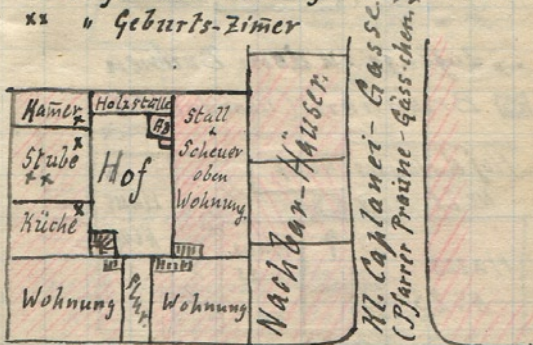 xx " Geburts-Zim̄er
Kam̄er
Holzställe
Ab
Stall
&
Scheuer
oben
Wohnung
Stube
xx
Hof
Küche
Wohnung
Flur
Wohnung
Nachbar-Häuser.
Kl. Caplanei-Gasse
(Pfarrer Praune-Gäss-chen.)